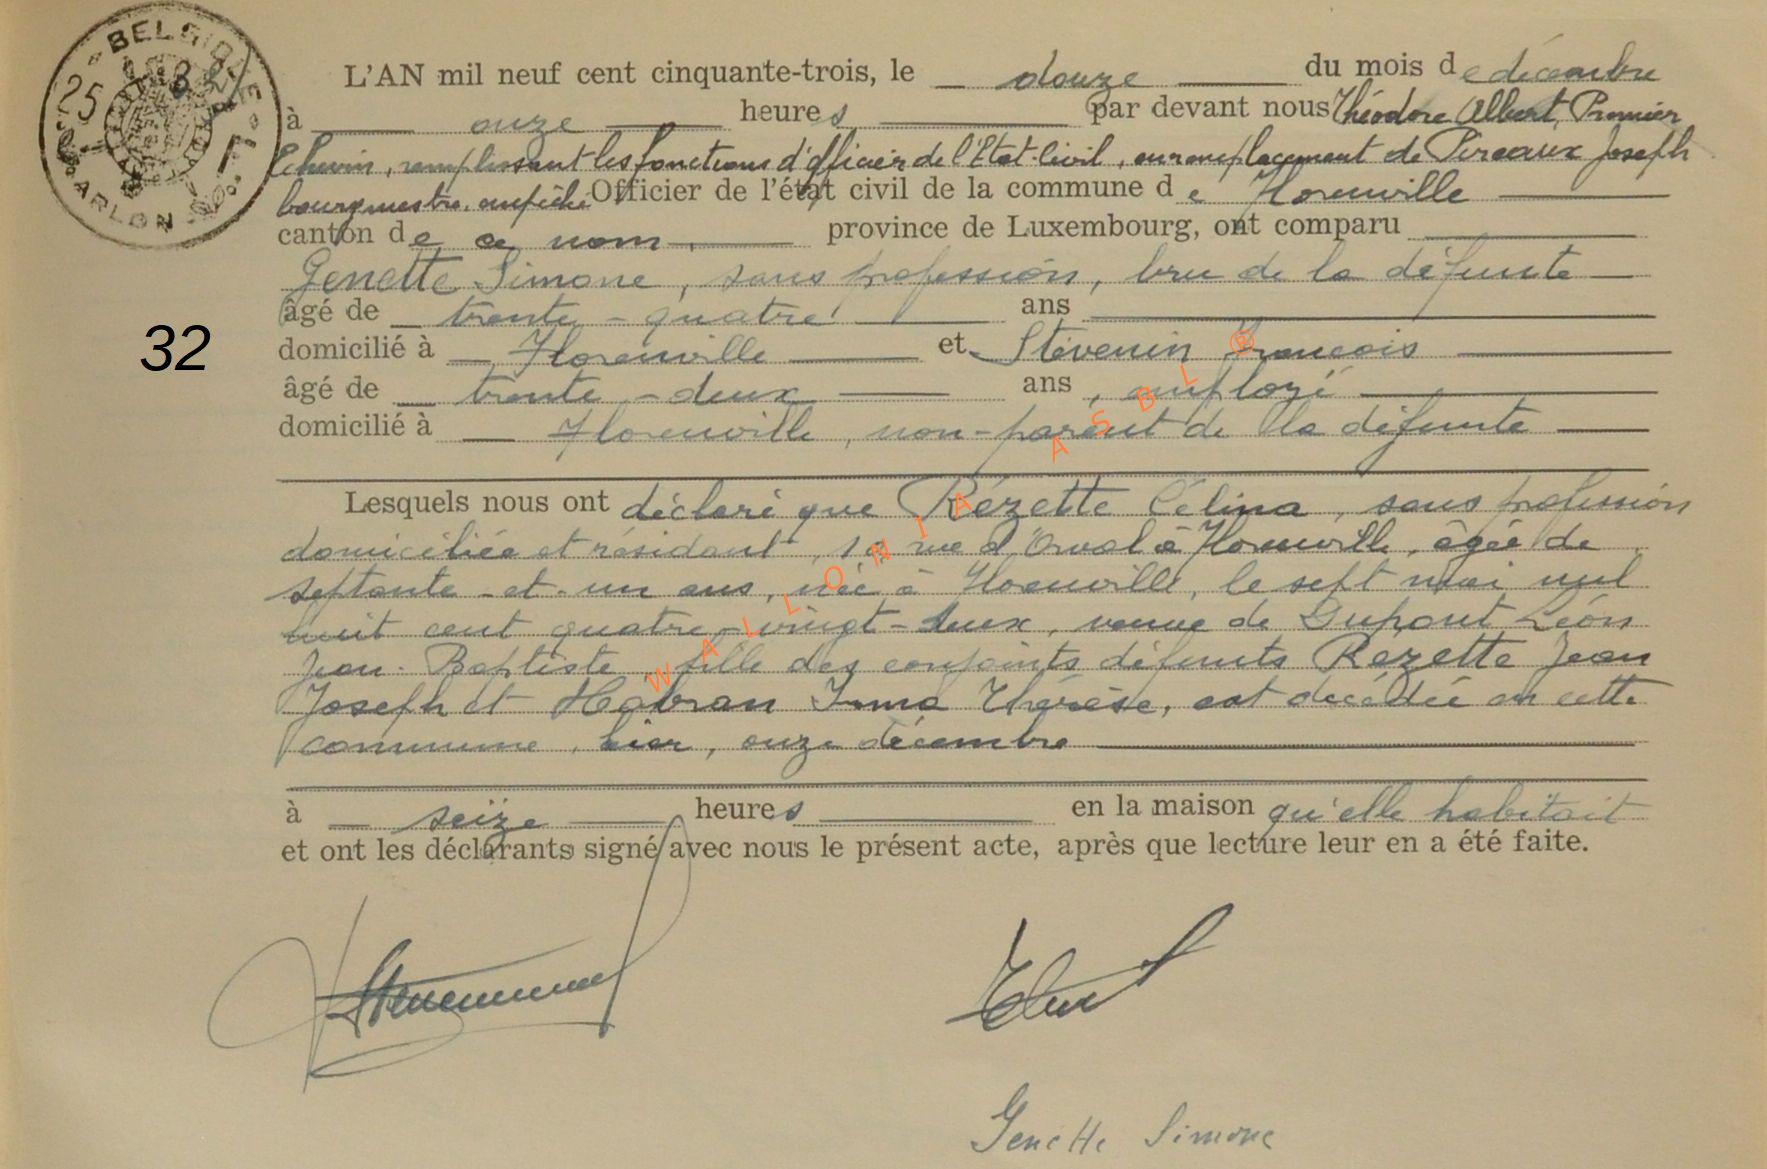 BELGIQUE
25 F
ARLON
L'AN mil neuf cent cinquante-trois, le douze du mois de décembre
à onze heures par devant nous Théodore Albert, Premier
Echevin, remplissant les fonctions d'officier de l'Etat-Civil, en remplacement de Pireaux Joseph
bourgmestre empêché Officier de l'état civil de la commune de Florenville
canton de ce nom, province de Luxembourg, ont comparu
Genette Simone, sans profession, bru de la défunte
âgé de trente-quatre ans
domicilié à Florenville et Stévenin François
âgé de trente-deux ans, employé
domicilié à Florenville, non-parent de la défunte
32
Lesquels nous ont déclaré que Rézette Célina, sans profession
domiciliée et résidant, rue d'Orval à Florenville, âgée de
septante-et-un ans, née à Florenville, le sept mai mil
huit cent quatre-vingt-deux, veuve de Dupont Léon
Jean-Baptiste, fille des conjoints défunts Rézette Jean
Joseph et Habran Irma Thérèse, est décédée en cette
commune, hier, onze décembre
à seize heures en la maison qu'elle habitait
et ont les déclarants signé avec nous le présent acte, après que lecture leur en a été faite.
Genette Simone
WALLONIA ASBL ®